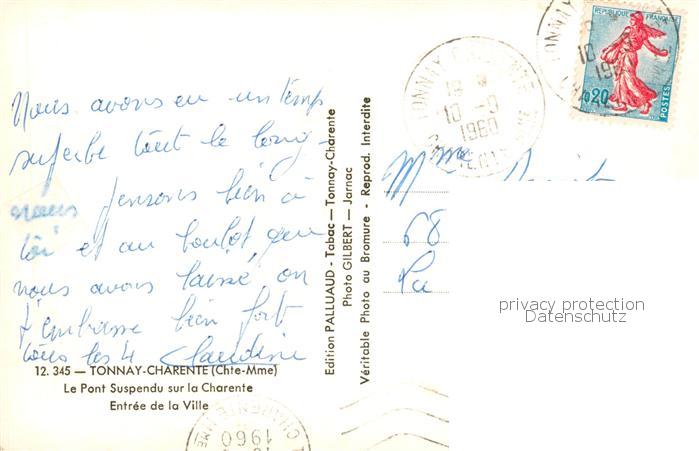 Nous avons eu un temps
superbe tout le long -
nous pensons bien à
toi et au boulot que
nous avons laissé, on
t'embrasse bien fort
tous les 4 Claudine
12. 345 — TONNAY-CHARENTE (Chte-Mme)
Le Pont Suspendu sur la Charente
Entrée de la Ville
Edition PALLUAUD - Tabac — Tonnay-Charente
Photo GILBERT — Jarnac
Véritable Photo au Bromure - Reprod. Interdite
TONNAY CHARENTE
10 -9
1960
CHARENTE MME
TONNAY
10
1960
REPUBLIQUE FRANÇAISE
0,20
POSTES
Mme
68
privacy protection
Datenschutz
CHARENTE MME
1960